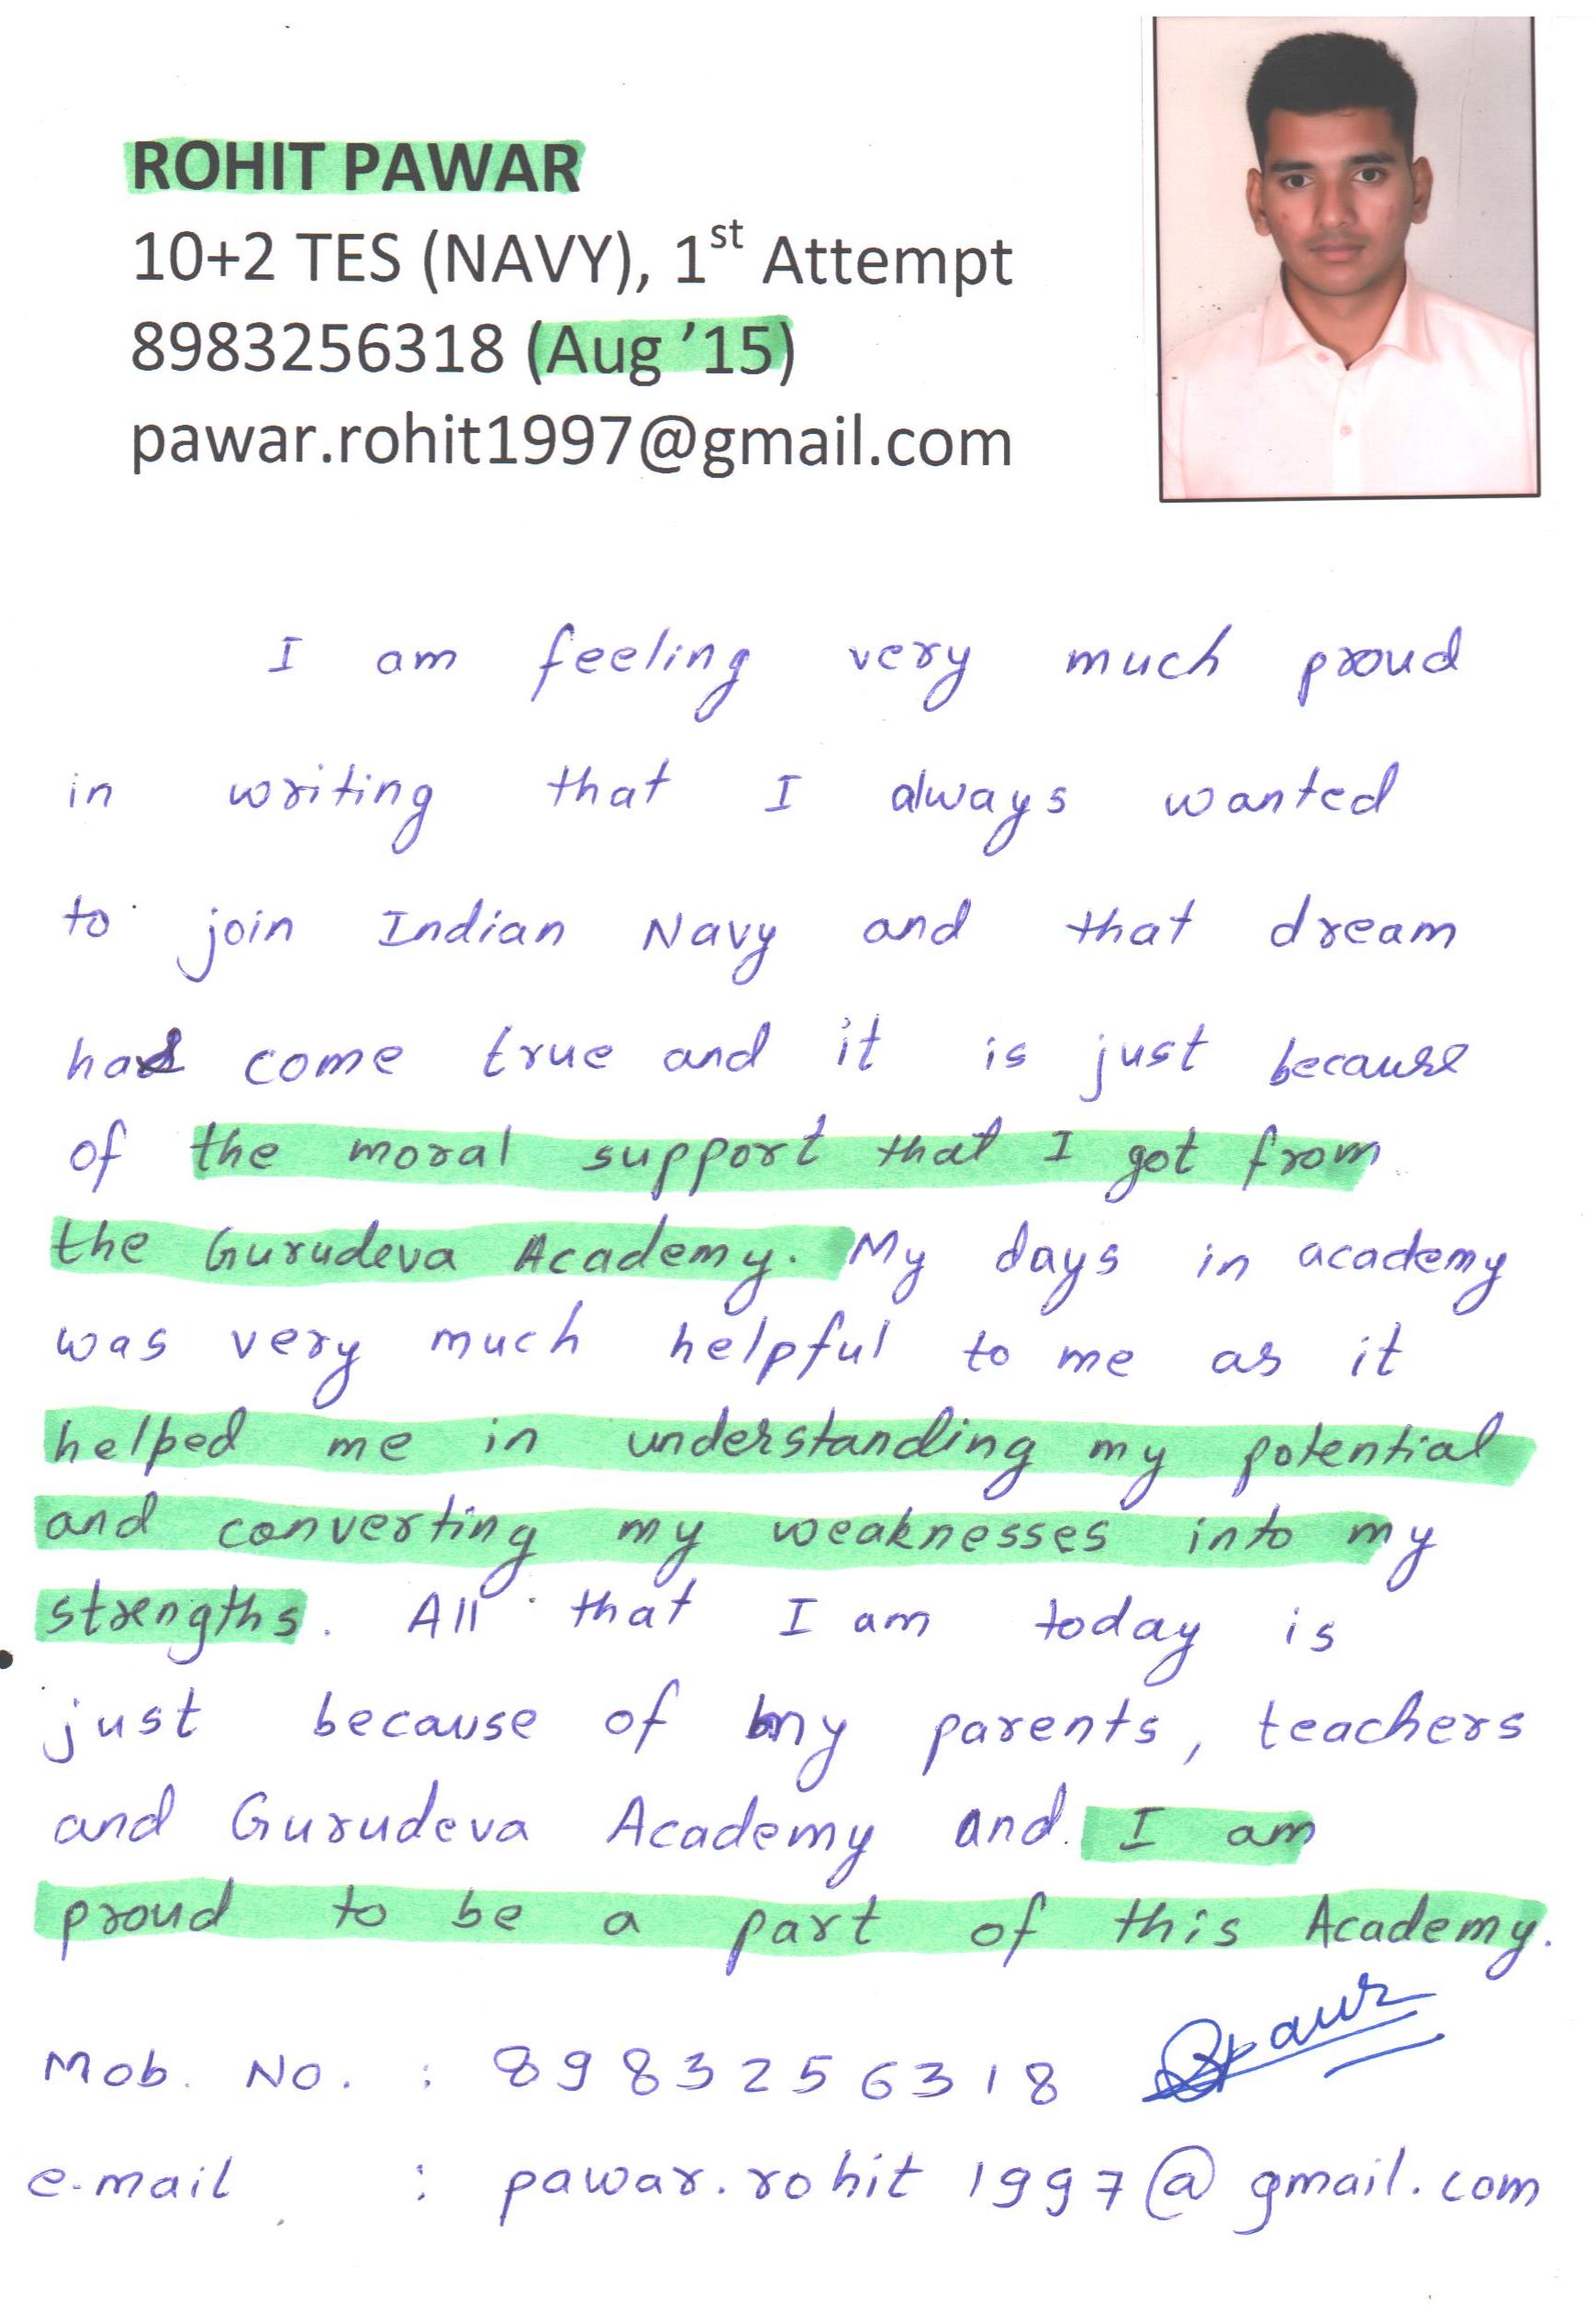 ROHIT PAWAR
10+2 TES (NAVY), 1st Attempt
8983256318 (Aug ’15)
pawar.rohit1997@gmail.com
I am feeling very much proud
in writing that I always wanted
to join Indian Navy and that dream
has come true and it is just because
of the moral support that I got from
the Gurudeva Academy. My days in academy
was very much helpful to me as it
helped me in understanding my potential
and converting my weaknesses into my
strengths. All that I am today is
just because of my parents, teachers
and Gurudeva Academy and I am
proud to be a part of this Academy.
Mob. No. : 8983256318
e-mail : pawar.rohit1997@gmail.com